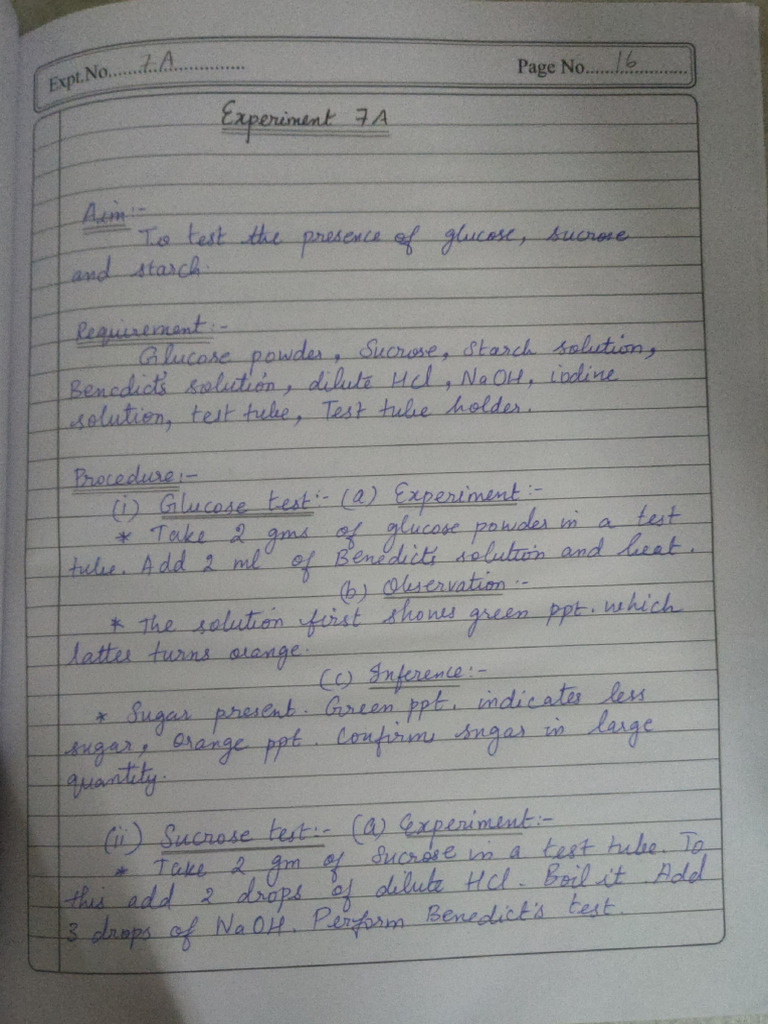 Expt.No......7A..............
Page No.....16...............
Experiment 7A
Aim:-
To test the presence of glucose, sucrose
and starch.
Requirement:-
Glucose powder, Sucrose, Starch solution,
Benedict's solution, dilute Hcl, NaOH, iodine
solution, test tube, Test tube holder.
Procedure:-
(i) Glucose test:- (a) Experiment:-
* Take 2 gms of glucose powder in a test
tube. Add 2 ml of Benedict's solution and heat.
(b) Observation:-
* The solution first shows green ppt. which
latter turns orange.
(c) Inference:-
* Sugar present. Green ppt. indicates less
sugar, Orange ppt. Confirms sugar in large
quantity.
(ii) Sucrose test:- (a) Experiment:-
* Take 2 gm of Sucrose in a test tube. To
this add 2 drops of dilute HCl. Boil it. Add
3 drops of NaOH. Perform Benedict's test.